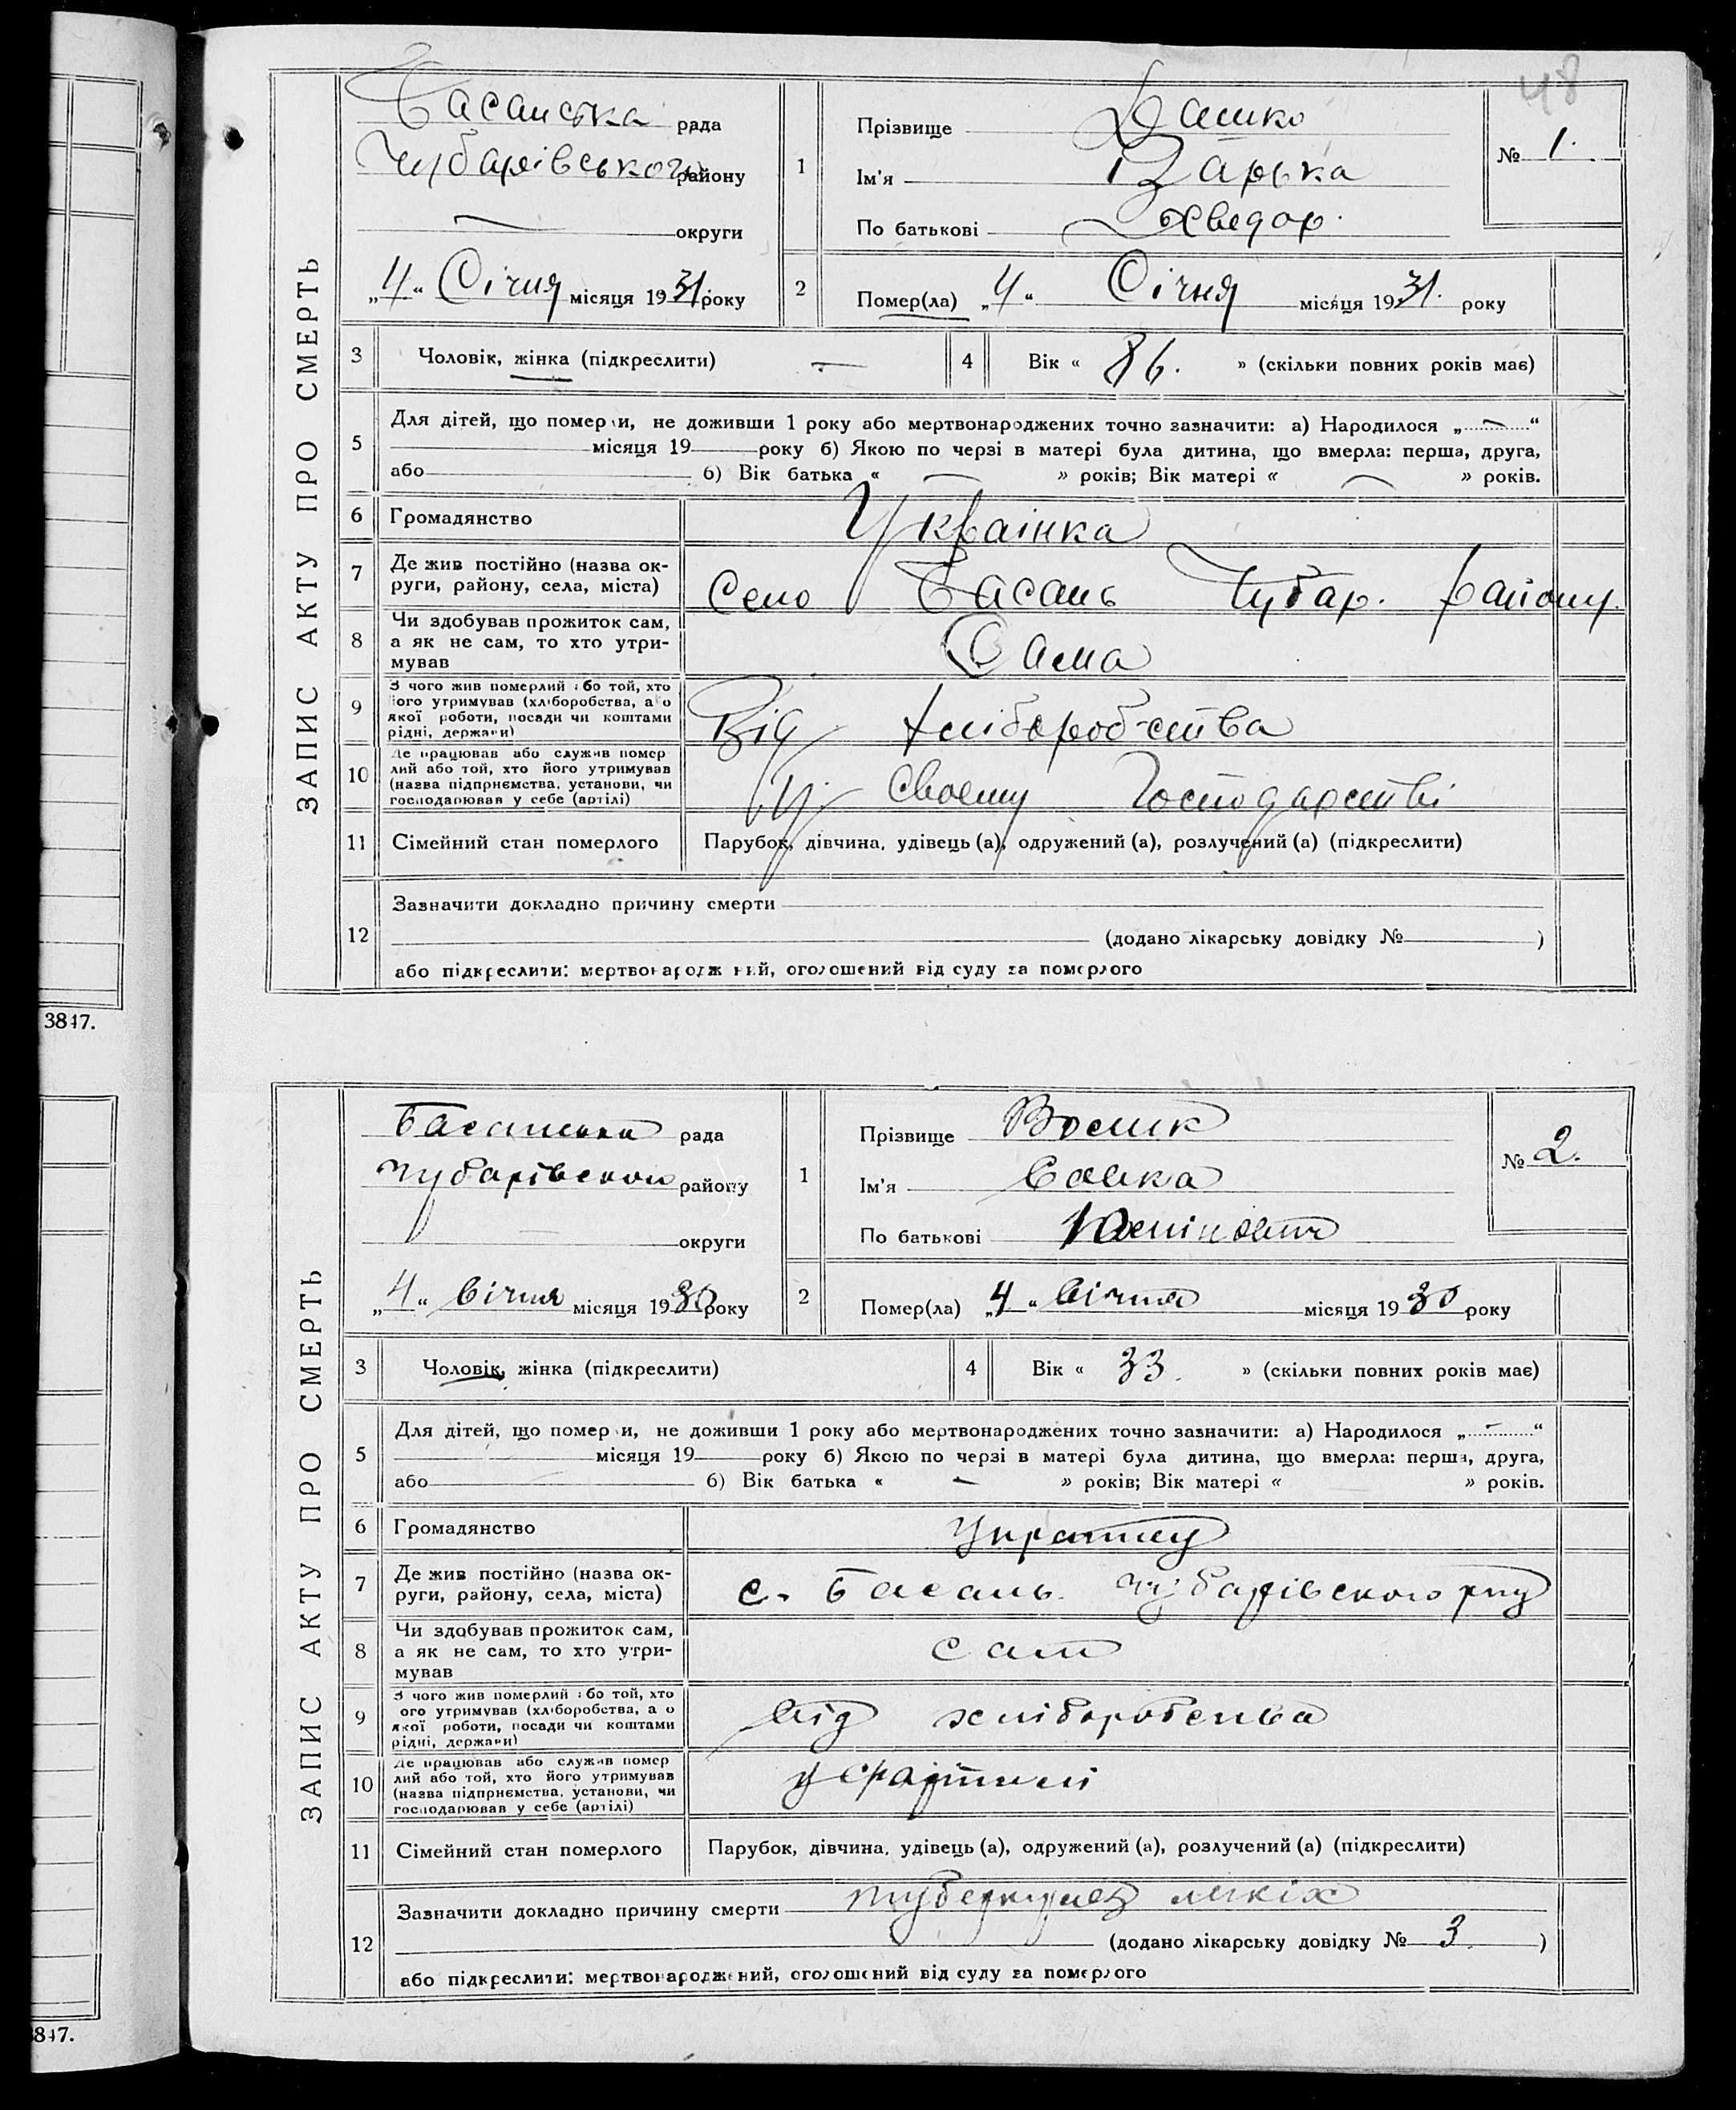 48
ЗАПИС АКТУ ПРО СМЕРТЬ
Басанська рада
Чубарівського району
округи
„4“ Січня місяця 1931 року
1
Прізвище Дашко
Ім'я Варька
По батькові Хведор.
№ 1.
2
Помер(ла) „4“ Січня місяця 1931. року
3 Чоловік, жінка (підкреслити) —
4 Вік « 86. » (скільки повних років має)
5 Для дітей, що помер и, не доживши 1 року або мертвонароджених точно зазначити: а) Народилося „—“
місяця 19 року б) Якою по черзі в матері була дитина, що вмерла: перша, друга,
або б) Вік батька « — » років; Вік матері « — » років.
6 Громадянство Українка
7 Де жив постійно (назва ок-
руги, району, села, міста) Село Басань Чубар. району.
8 Чи здобував прожиток сам,
а як не сам, то хто утри-
мував Сама
9 З чого жив померлий або той, хто
його утримував (хліборобства, або
якої роботи, посади чи коштами
рідні, держави) Від хліборобства
10 Де працював або служив помер
лий або той, хто його утримував
(назва підприємства, установи, чи
господарював у себе (артілі) У своєму господарстві
11 Сімейний стан померлого Парубок, дівчина, удівець (а), одружений (а), розлучений (а) (підкреслити)
12 Зазначити докладно причину смерти
(додано лікарську довідку № )
або підкреслити: мертвонароджений, оголошений від суду за померлого
3847.
ЗАПИС АКТУ ПРО СМЕРТЬ
Басанська рада
Чубарівського району
округи
„4“ січня місяця 1930 року
1
Прізвище
Ім'я Савка
По батькові
№ 2.
2
Помер(ла) „4“ січня місяця 1930 року
3 Чоловік, жінка (підкреслити)
4 Вік « 33. » (скільки повних років має)
5 Для дітей, що помер и, не доживши 1 року або мертвонароджених точно зазначити: а) Народилося „—“
місяця 19 року б) Якою по черзі в матері була дитина, що вмерла: перша, друга,
або б) Вік батька « — » років; Вік матері « » років.
6 Громадянство
7 Де жив постійно (назва ок-
руги, району, села, міста) с. Басань Чубарівського р-ну
8 Чи здобував прожиток сам,
а як не сам, то хто утри-
мував сам
9 З чого жив померлий або той, хто
його утримував (хліборобства, або
якої роботи, посади чи коштами
рідні, держави) від хліборобства
10 Де працював або служив помер
лий або той, хто його утримував
(назва підприємства, установи, чи
господарював у себе (артілі)
11 Сімейний стан померлого Парубок, дівчина, удівець (а), одружений (а), розлучений (а) (підкреслити)
12 Зазначити докладно причину смерти туберкулез легких
(додано лікарську довідку № 3. )
або підкреслити: мертвонароджений, оголошений від суду за померлого
847.